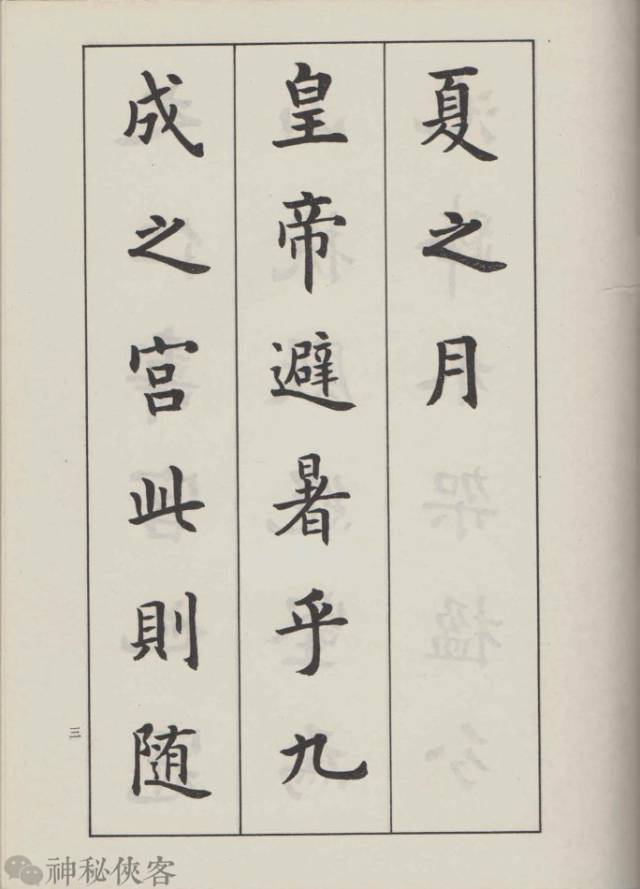 夏之月
皇帝避暑乎九
成之宮此則随
三
神秘俠客